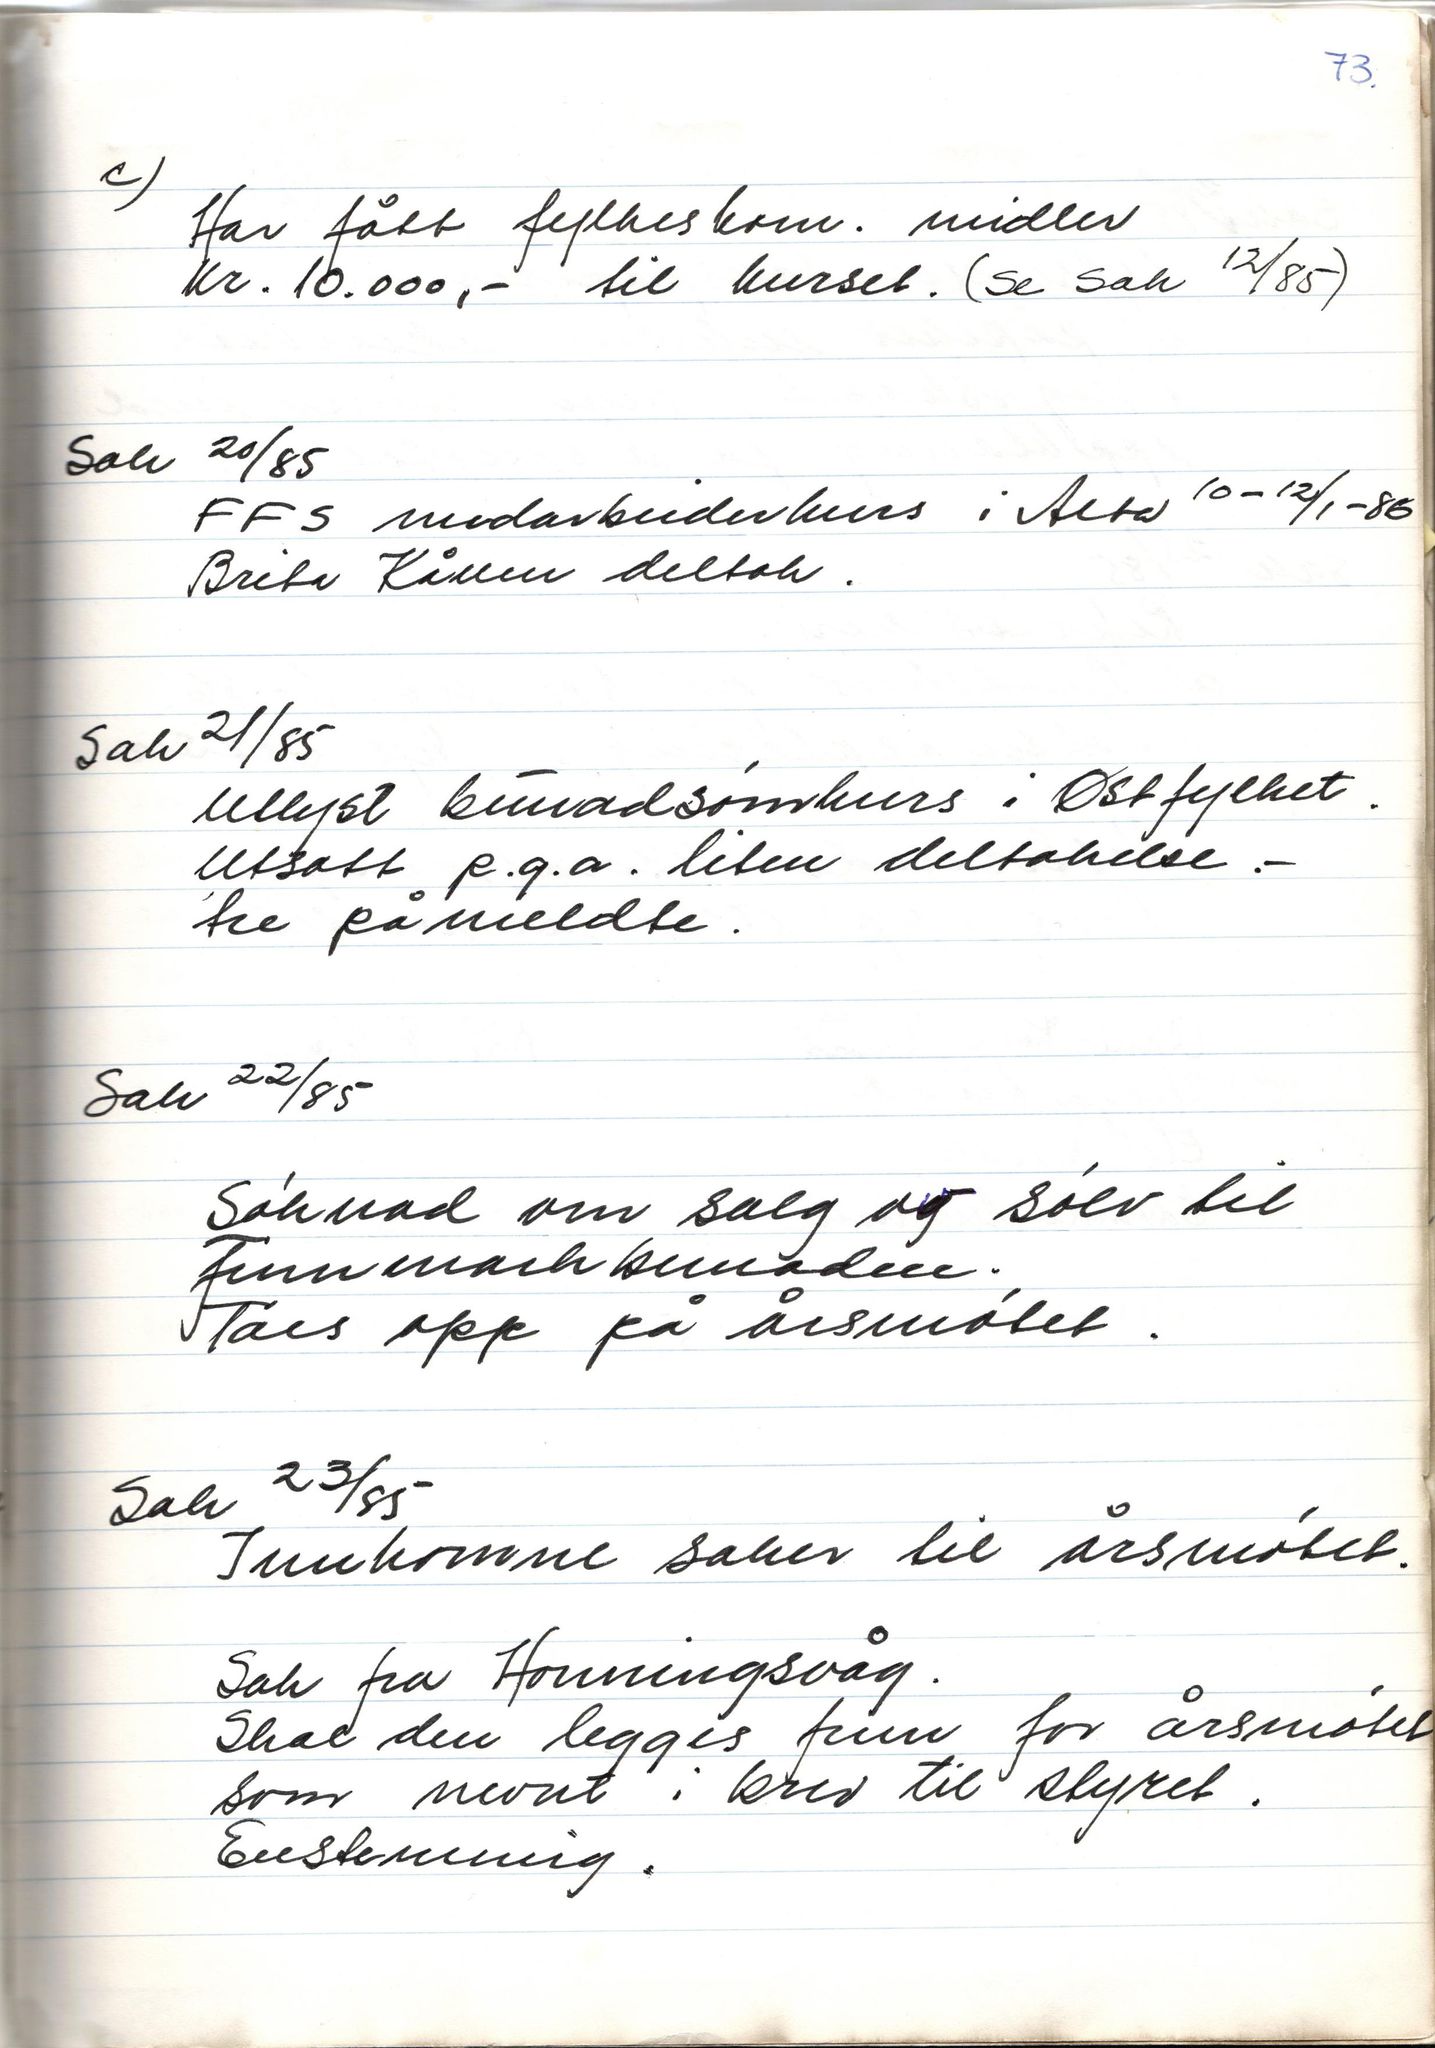 73.
c)
Har fått fylkeskom. midler
kr. 10.000,- til kurset. (se sak 12/85)
Sak 20/85
FFS medarbeiderkurs i Alta 10-12/1-86
Brita Kåven deltok.
Sak 21/85
Utlyst bunadsømkurs i Østfylket.
Utsatt p.g.a. liten deltakelse.-
tre påmeldte.
Sak 22/85
Søknad om salg og sølv til
Finnmarkbunaden.
Taes opp på årsmøtet.
Sak 23/85
Innkomne saker til årsmøtet.
Sak fra Honningsvåg.
Skal den legges fram for årsmøtet
som nevnt i brev til styret.
Enstemmig.